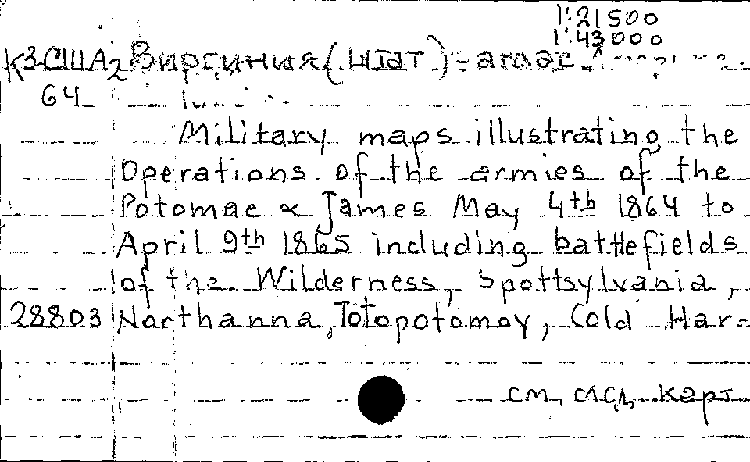 1:21500
1:43000
К3США2 Виргиния (штат) - атлас
64
Military maps illustrating the
Operations of the armies of the
Potomac & James May 4th 1864 to
April 9th 1865 including battlefields
of the Wilderness, Spottsylvania,
28803 Northanna, Totopotomoy, Cold Har-
см. след. карт